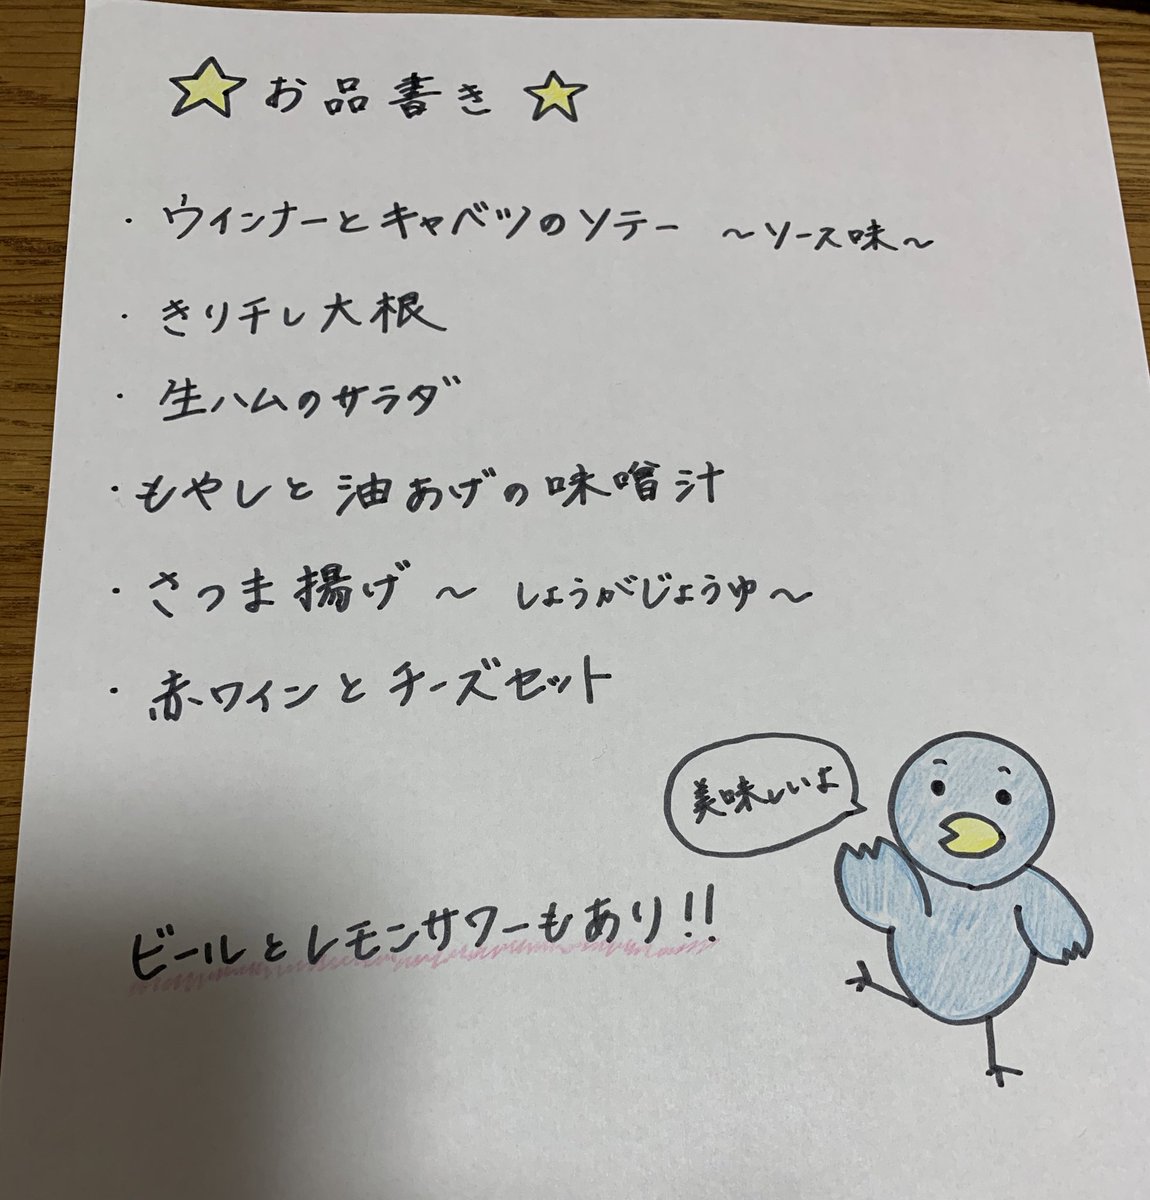 ☆お品書き☆
・ウインナーとキャベツのソテー 〜ソース味〜
・きり干し大根
・生ハムのサラダ
・もやしと油あげの味噌汁
・さつま揚げ 〜しょうがじょうゆ〜
・赤ワインとチーズセット
美味しいよ
ビールとレモンサワーもあり!!